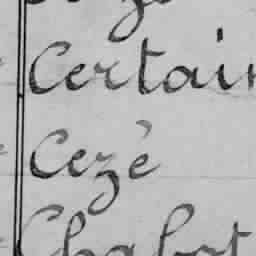 Certain
Cezé
Chabot